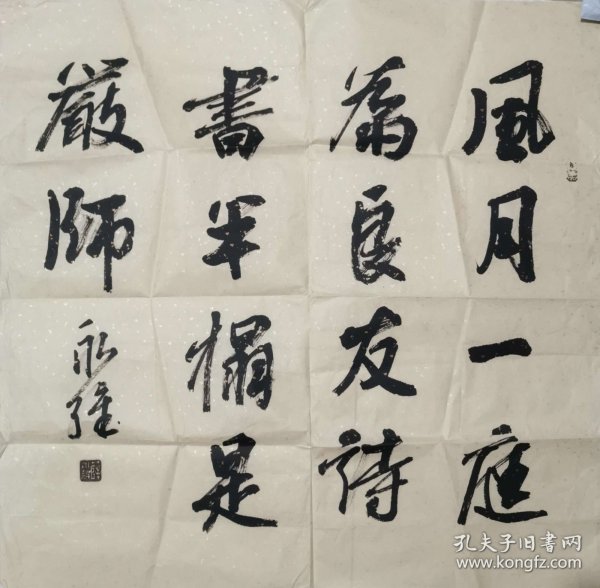 風月一庭
為良友詩
書半榻是
嚴師
永強
孔夫子旧书网
www.kongfz.com